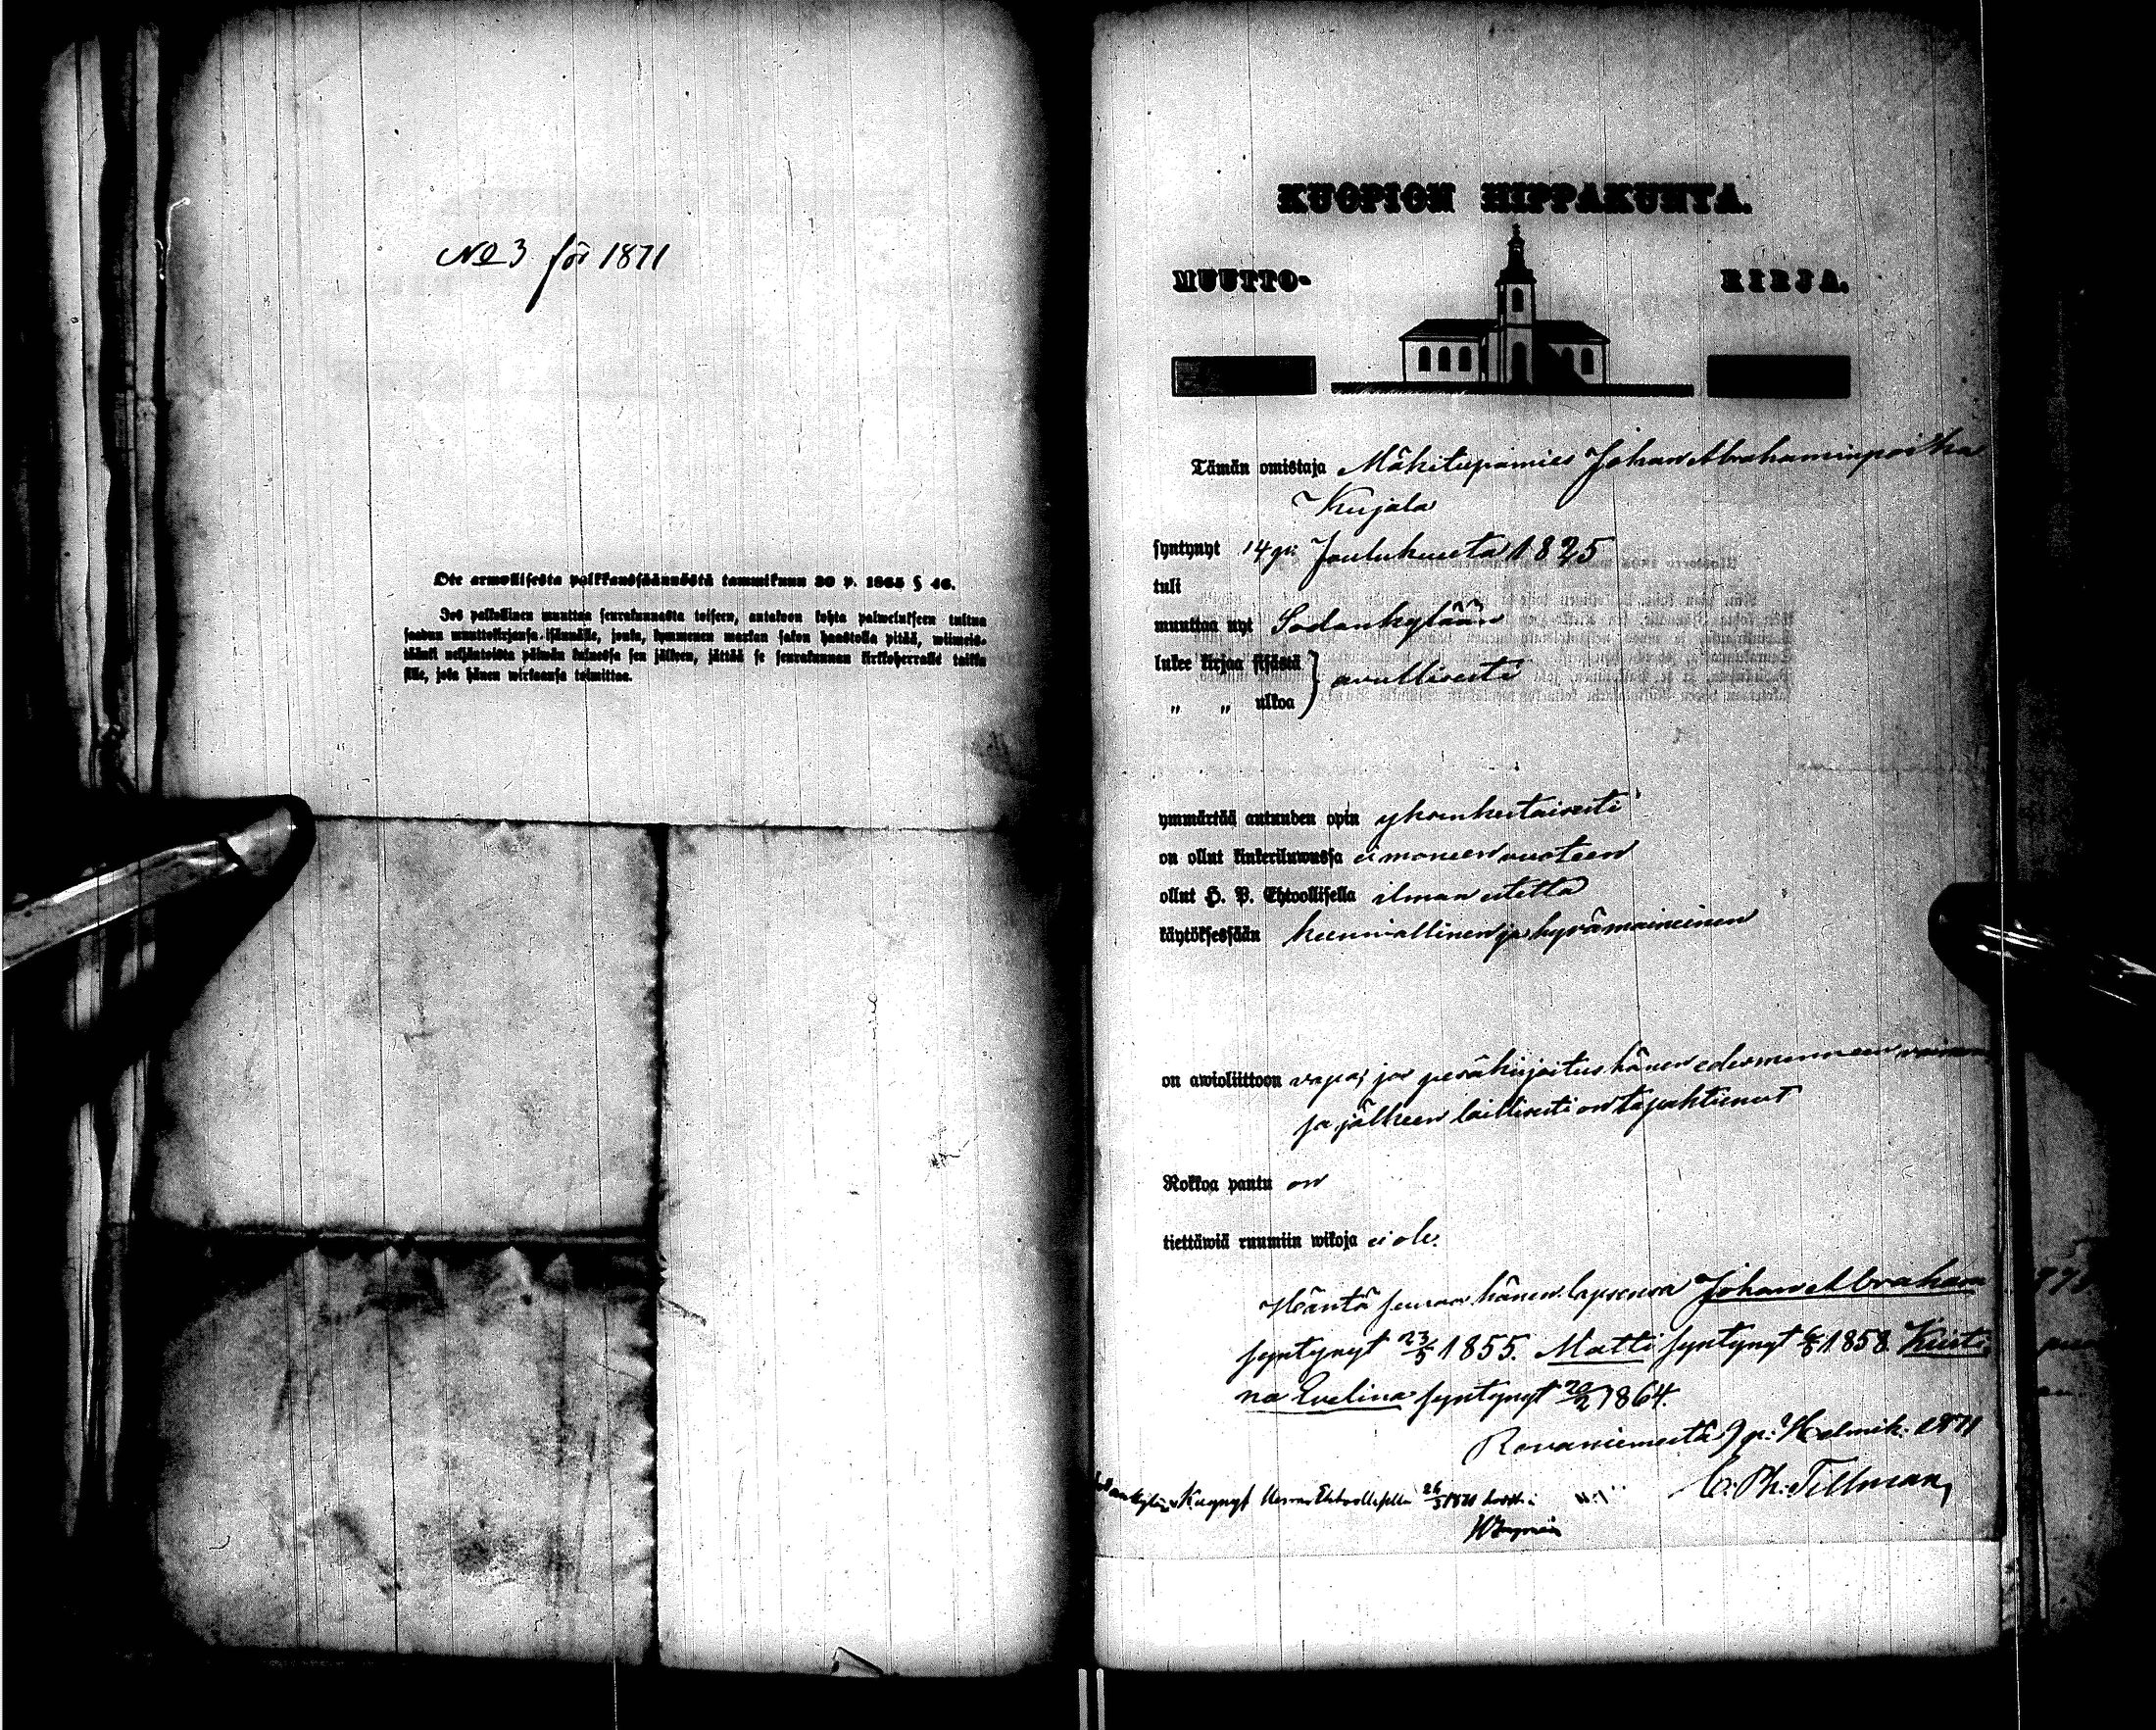 No 3 för 1871
Ote armollisesta palkkaussäännöstä tammikuun 30 p. 1865 § 46.
Jos palkollinen muuttaa seurakunnasta toiseen, antakoon kohta palwelukseen tultua
saadun muuttokirjansa isännälle, jonka, kymmenen markan sakon haastolla pitää, wiimeis-
täänki neljäntoista päiwän kuluessa sen jälkeen, jättää se seurakunnan kirkkoherralle taikka
sille, joka hänen wirkaansa toimittaa.
KUOPION HIPPAKUNTA.
MUUTTO- KIRJA.
Tämän omistaja Mäkitupamies Johan Abrahaminpoika
Kujala
syntynyt 14 p: Joulukuuta 1825
tuli
muuttaa nyt Sodankylään
lukee kirjaa sisästä } avullisesti
" " ulkoa
ymmärtää autuuden opin yksinkertaisesti
on ollut kinkeriluwussa ei moneen vuoteen
ollut H. P. Ehtoollisella ilman estettä
käytöksessään kunniallinen ja hyvämaineinen
on awioliittoon vapa; ja peräkirjoitus hänen edesmenneen vaimon
sa jälkeen laillisesti on tapahtunut
Rokkoa pantu on
tiettäwiä ruumiin wikoja ei ole.
Häntä seuraa hänen lapsensa Johan Abraham
syntynyt 23/5 1855. Matti syntynyt 6/8 1858. Kusti-
na Evelina syntynyt 20/2 1864.
Rovaniemestä 9 p: Helmik: 1871
C. Ph: Tillman,
Käynyt Herran Ehtoollisella 26/3 1871